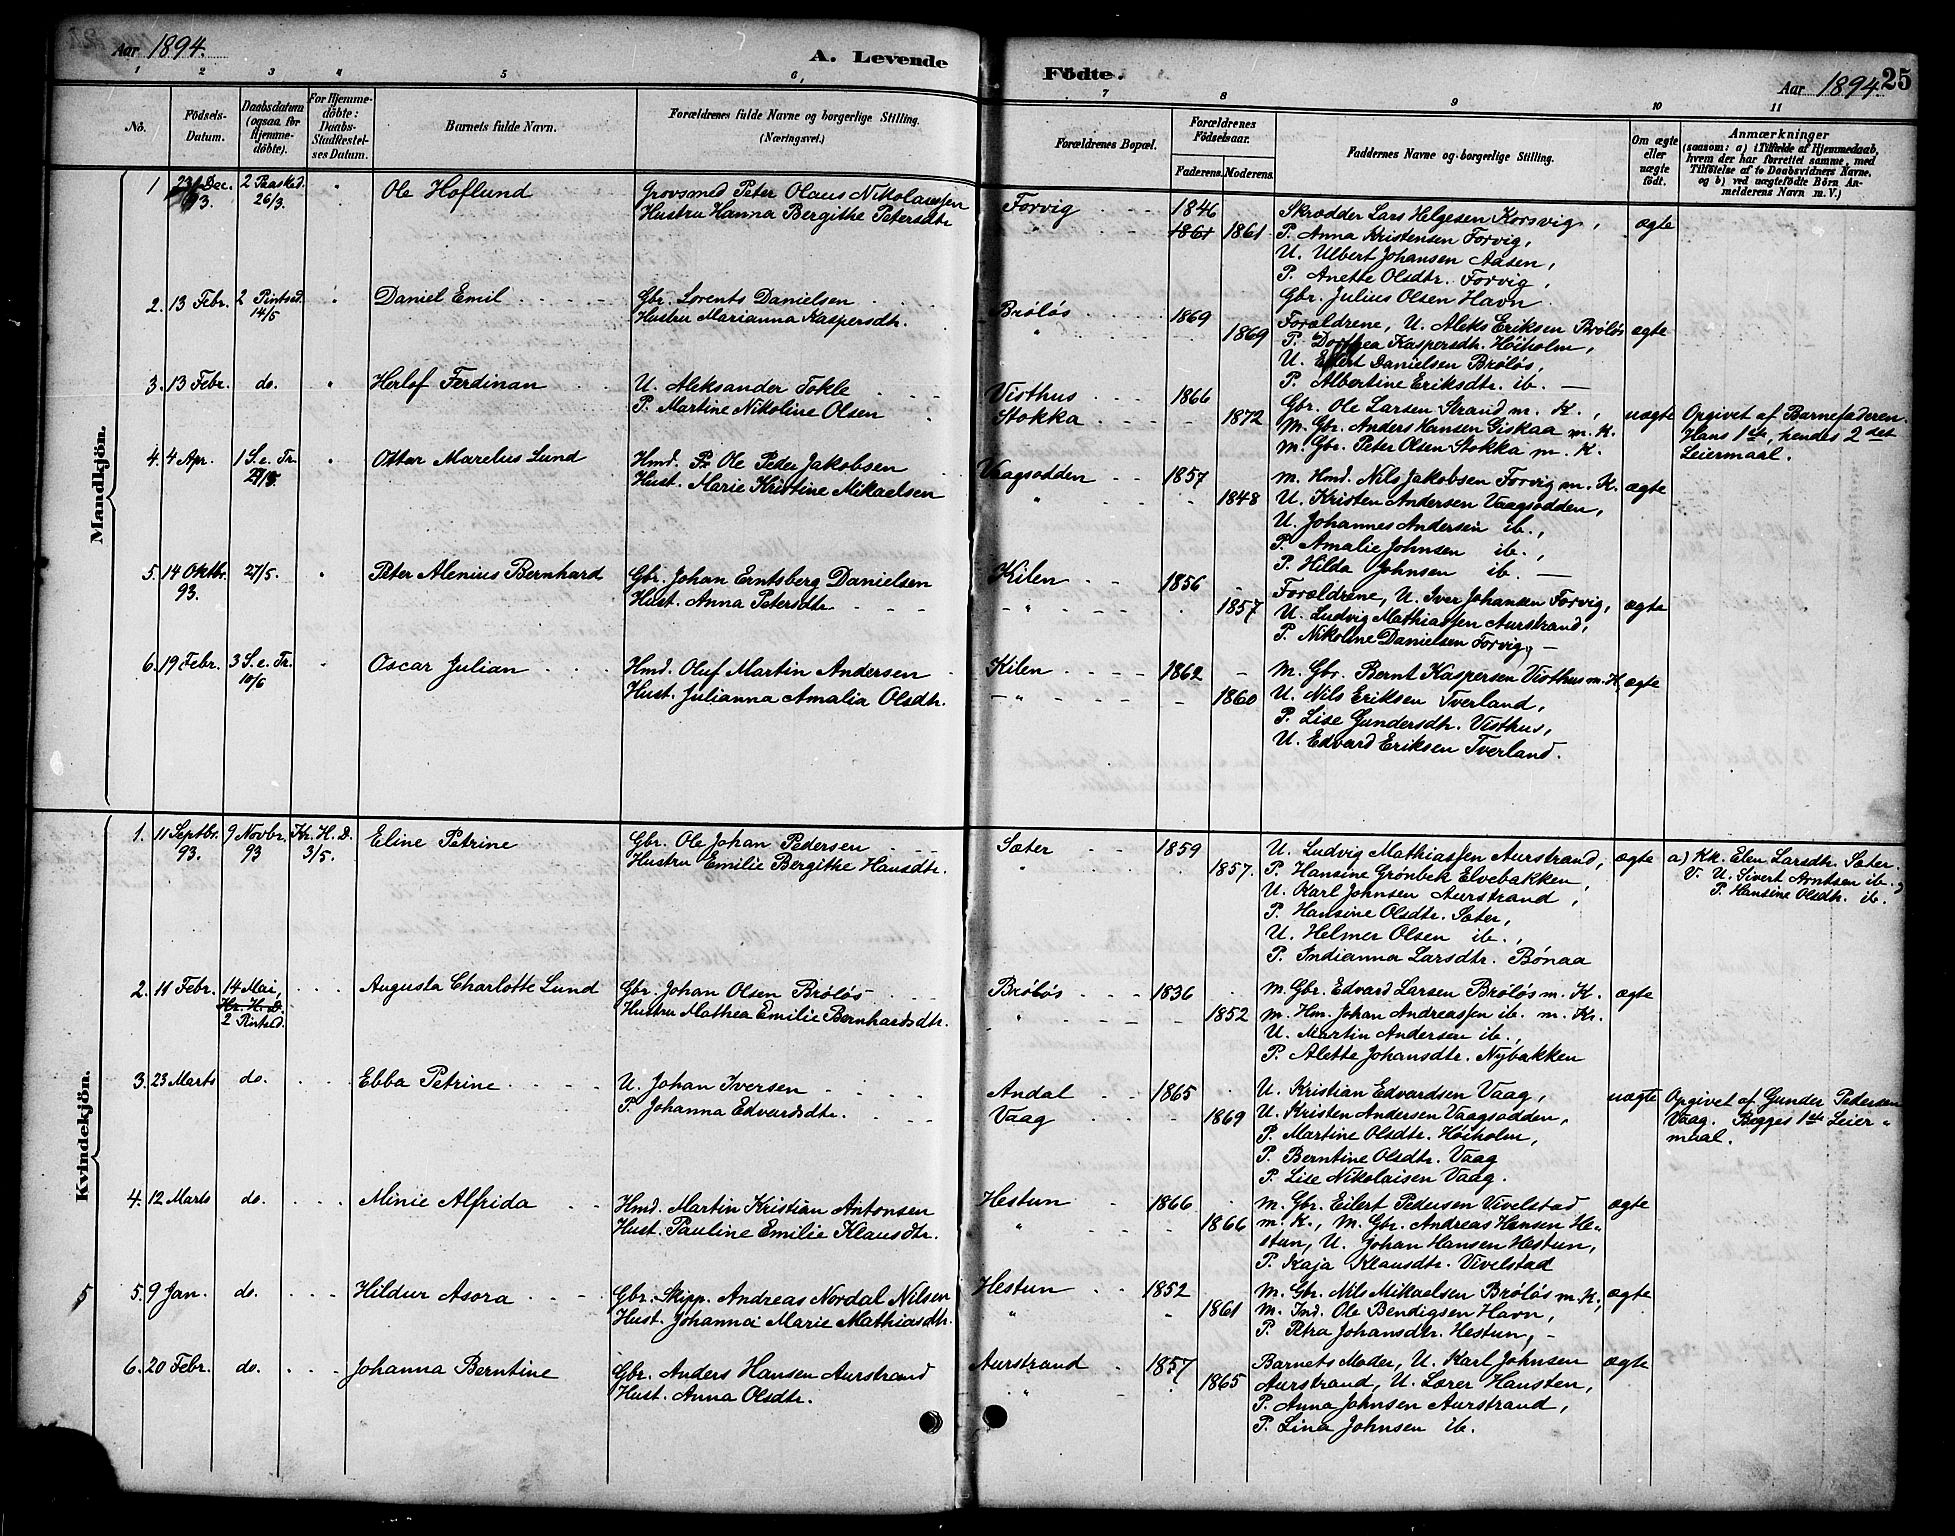 Aar 1894.
A. Levende
Födte.
Aar 1894.
25
1 2 3 4 5 6 7 8 9 10 11
No.
Födsels-Datum.
Daabsdatum (ogsaa for Hjemmedöbte).
For Hjemmedöbte: Daabs-Stadfæstelses Datum.
Barnets fulde Navn.
Forældrenes fulde Navne og borgerlige Stilling.
(Næringsvei.)
Forældrenes Bopæl.
Forældrenes Födselsaar.
Faderens. Moderens.
Faddernes Navne og borgerlige Stilling.
Om ægte eller uægte födt.
Anmærkninger
(saasom: a) i Tilfælde af Hjemmedaab, hvem der har forrettet samme, med Tilföielse af to Daabsvidners Navne, og b) ved uægtefödte Börn Anmelderens Navn m. V.)
Mandkjön.
1 23 Dec. 93. 2 Paasked. 26/3. " Ole Hoflund
Grovsmed Peter Olaus Nikolaussen
Hustru Hanna Bergithe Petersdtr
Forvig 1846
" 1861 1861
Skrædder Lars Helgesen Korsvig,
P. Anna Kristensen Forvig,
U. Ulbert Johansen Aasen,
P. Anette Olsdtr. Forvig,
Gbr. Julius Olsen Havn.
ægte
2. 13 Febr. 2 Pintsed. 14/5 " Daniel Emil
Gbr. Lorents Danielsen
Hustru Marianna Kaspersdtr.
Bröløs 1869
" 1869
Forældrene, U. Aleks Eriksen Bröløs
P. Dorthea Kaspersdtr. Höiholm,
U. Eilert Danielsen Bröløs,
P. Albertine Eriksdtr. ib. —
ægte
3. 13 Febr. do. " Herlof Ferdinan
U. Aleksander Tokle
P. Martine Nikoline Olsen
Visthus 1866
Stokka 1872
Gbr. Ole Larsen Strand m. K.,
M. Gbr. Anders Hansen Giskaa m. K.
M. Gbr. Peter Olsen Stokka m. K.
uægte
Opgivet af Barnefaderen.
Hans 1ste, hendes 2det
Leiermaal.
4. 4 Apr. 1 S. e. Tr. 27/5. " Ottar Marelius Lund
Hmd. Ole Peder Jakobsen
Hust. Marie Kristine Mikaelsen
Vaagsodden 1857
" 1848
M. Hmd. Nils Jakobsen Forvig m. K.
U. Kristen Andersen Vaagsodden,
U. Johannes Andersen ib.,
P. Amalie Johnsen ib.,
P. Hilda Johnsen ib. —
ægte
5. 14 Oktbr. 93. 27/5. " Peter Alenius Bernhard
Gbr. Johan Erntsberg Danielsen
Hust. Anna Petersdtr.
Kilen 1856
" 1857
Forældrene, U. Iver Johansen Forvig,
U. Ludvig Mathiassen Aurstrand,
P. Nikoline Danielsen Forvig, —
ægte
6. 19 Febr. 3 S. e. Tr. 10/6 " Oscar Julian
Hmd. Oluf Martin Andersen
Hust. Julianna Amalia Olsdtr.
Kilen 1862
" 1860
M. Gbr. Bernt Kaspersen Visthus m. K.
U. Nils Eriksen Tverland,
P. Lise Gundersdtr. Visthus,
U. Edvard Eriksen Tverland.
ægte
Kvindekjön.
1. 11 Septbr. 93. 9 Novbr. 93 Kr. H. D. 3/5. Eline Petrine
Gbr. Ole Johan Pedersen
Hustru Emilie Bergithe Hansdtr.
Sæter 1859
" 1857.
U. Ludvig Mathiassen Aurstrand,
P. Hansine Grönbek Elvebakken,
U. Karl Johnsen Aurstrand,
P. Hansine Olsdtr. Sæter,
U. Helmer Olsen ib.,
P. Indianna Larsdtr. Bønaa
ægte
a) Kk. Elen Larsdtr. Sæter.
V. U. Sivert Arntsen ib. og
P. Hansine Olsdtr. ib.
2. 11 Febr. 14 Mai, Kr. H. D. 2 Pintsed. Augusta Charlotte Lund
Gbr. Johan Olsen Bröløs
Hustru Mathea Emilie Bernhardsdtr.
Bröløs 1836
" 1852
M. Gbr. Edvard Larsen Bröløs m. K.
M. Hm. Johan Andreassen ib. m. K.
U. Martin Andersen ib.,
P. Alette Johansdtr. Nybakken
ægte
3. 23 Marts do. Ebba Petrine
U. Johan Iversen
P. Johanna Edvardsdtr.
Andal 1865
Vaag 1869
U. Kristian Edvardsen Vaag,
U. Kristen Andersen Vaagsodden,
P. Martine Olsdtr. Höiholm,
P. Berntine Olsdtr. Vaag
P. Lise Nikolaisen Vaag.
uægte
Opgivet af Gunder Pedersen
Vaag. Begges 1ste Leier-
maal.
4. 12 Marts do. Minie Alfrida
Hmd. Martin Kristian Antonsen
Hust. Pauline Emilie Klausdtr.
Hestun 1866
" 1866
M. Gbr. Eilert Pedersen Vivelstad
m. K., M. Gbr. Andreas Hansen He-
stun, U. Johan Hansen Hestun,
P. Kaja Klausdtr. Vivelstad
ægte
5 5. 9 Jan. do. Hildur Asora
Gbr. Skipp. Andreas Nordal Nilsen
Hust. Johanna Marie Mathiasdtr.
Hestun 1852
" 1861
M. Gbr. Nils Mikaelsen Bröløs m. K.,
M. Ind. Ole Bendigsen Havn,
P. Petra Johansdtr. Hestun, —
ægte
6. 20 Febr. do. Johanna Berntine
Gbr. Anders Hansen Aurstrand
Hust. Anna Olsdtr.
Aurstrand 1857
" 1865
Barnets Moder, U. Karl Johnsen
Aurstrand, U. Lærer Hansten,
P. Anna Johnsen Aurstrand,
P. Lina Johnsen ib.
ægte